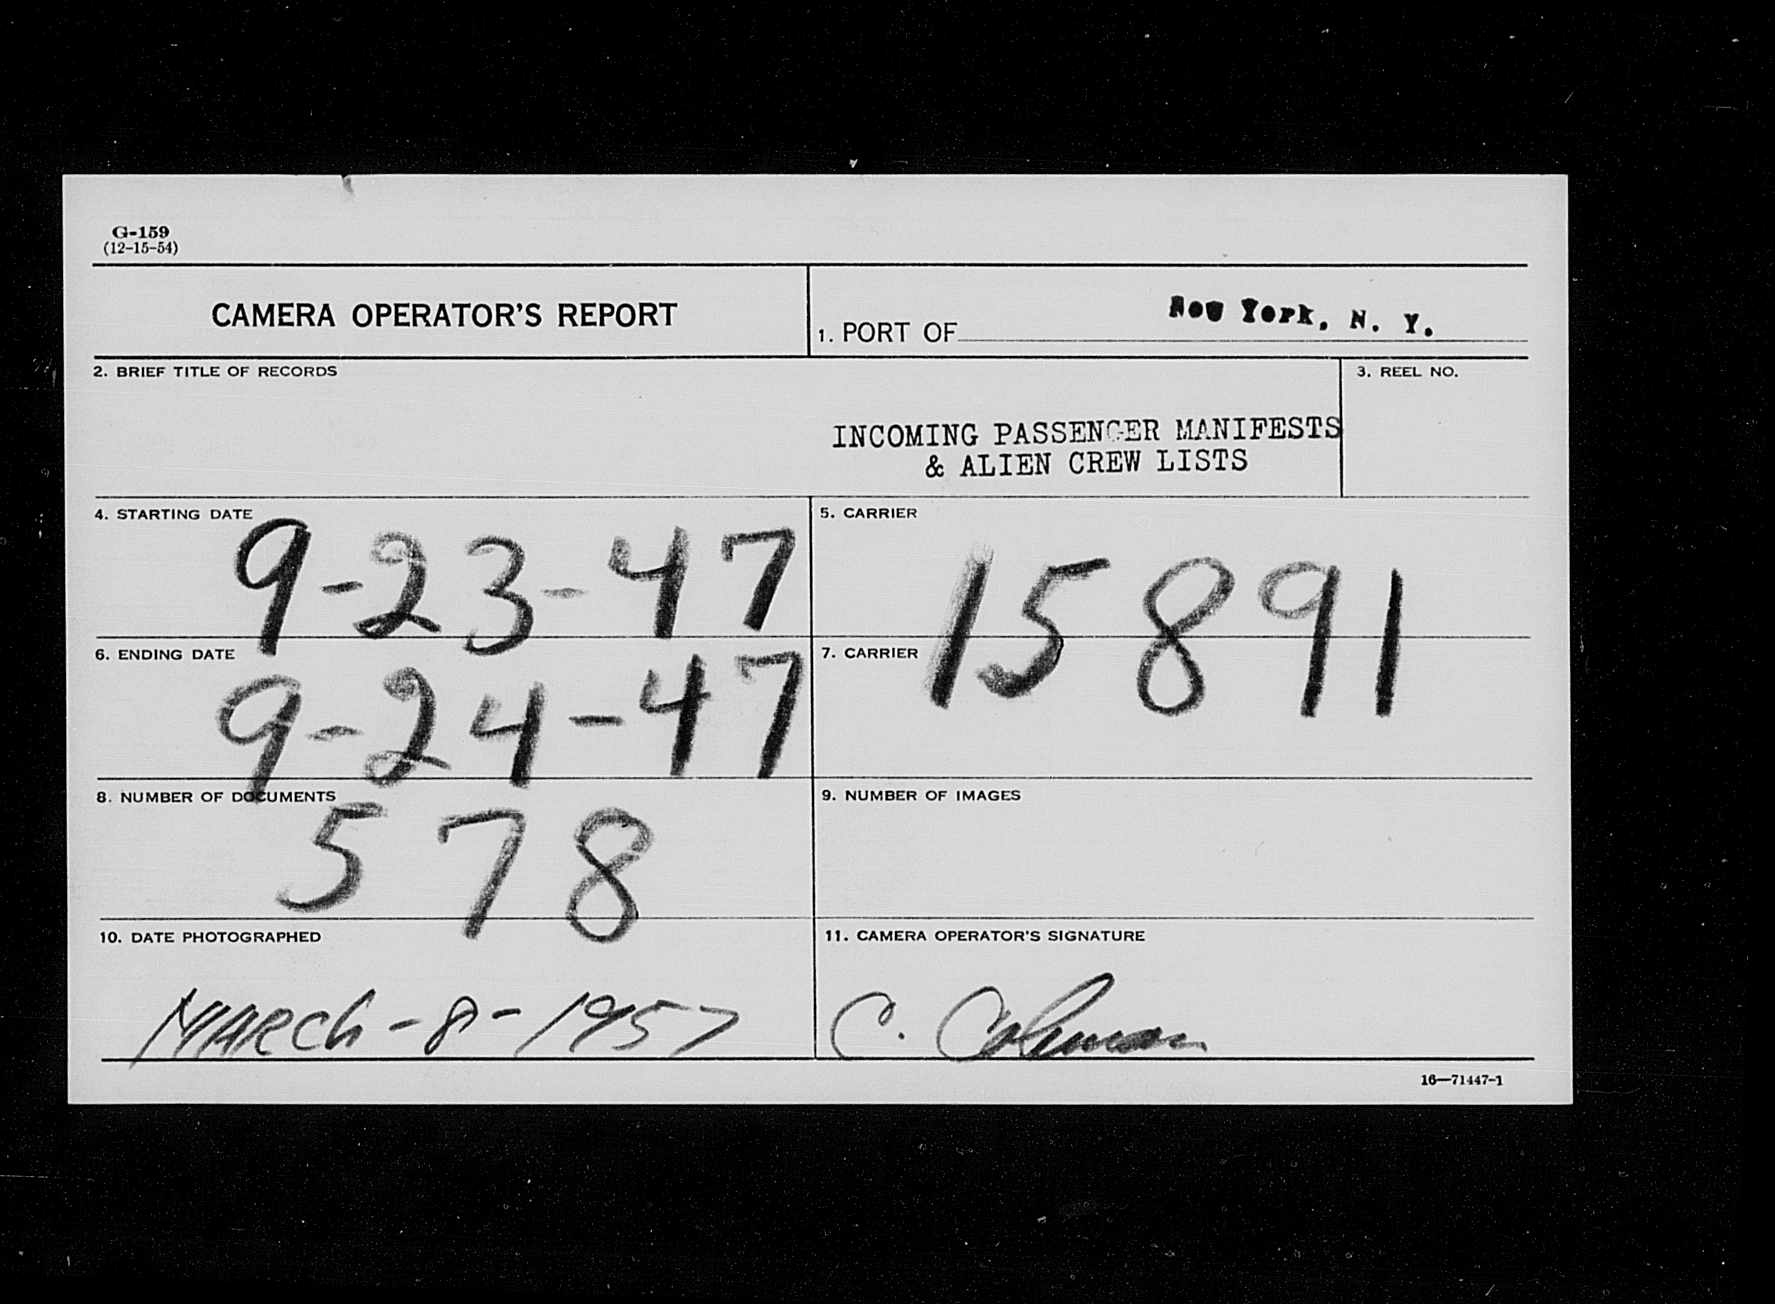 G-159
(12-15-54)
CAMERA OPERATOR'S REPORT
1. PORT OF New York, N. Y.
2. BRIEF TITLE OF RECORDS
3. REEL NO.
INCOMING PASSENGER MANIFESTS
& ALIEN CREW LISTS
4. STARTING DATE
9-23-47
5. CARRIER
15891
6. ENDING DATE
9-24-47
7. CARRIER
8. NUMBER OF DOCUMENTS
578
9. NUMBER OF IMAGES
10. DATE PHOTOGRAPHED
MARCh-8-1957
11. CAMERA OPERATOR'S SIGNATURE
C. Coleman
16—71447-1